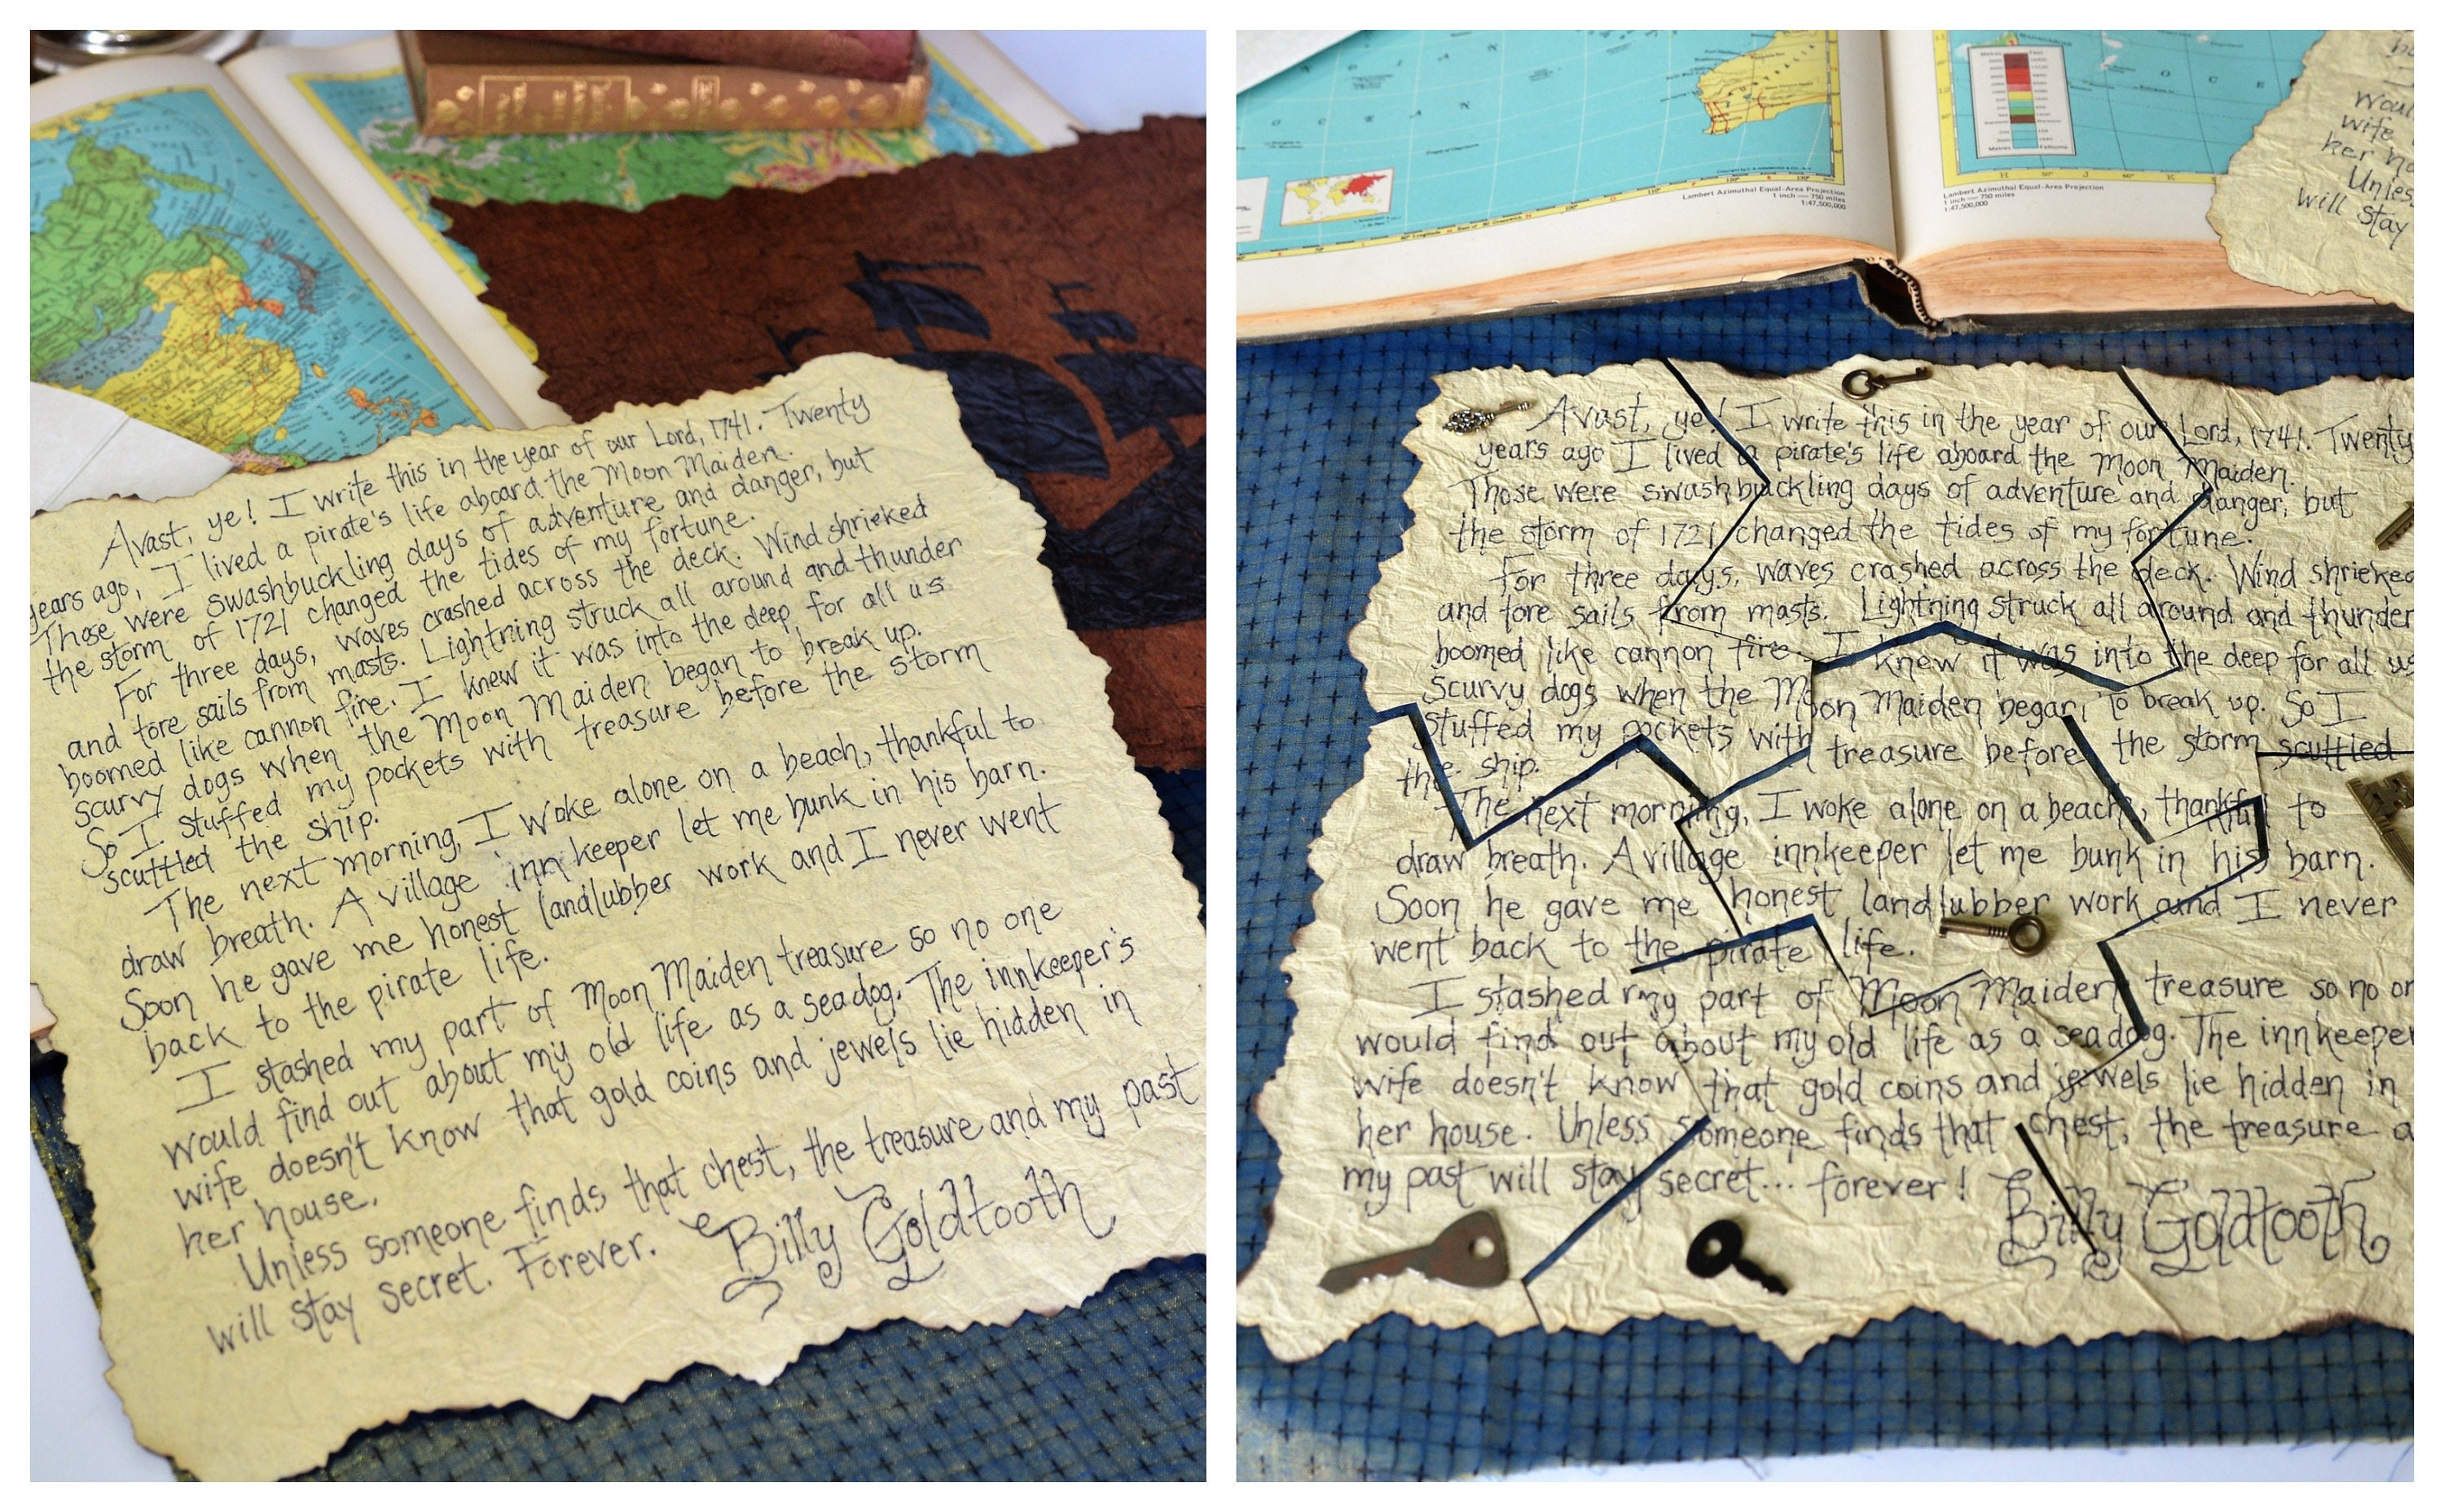 Avast, ye! I write this in the year of our Lord, 1741. Twenty
years ago, I lived a pirate's life aboard the Moon Maiden.
Those were swashbuckling days of adventure and danger, but
the storm of 1721 changed the tides of my fortune.
For three days, waves crashed across the deck. Wind shrieked
and tore sails from masts. Lightning struck all around and thunder
boomed like cannon fire. I knew it was into the deep for all us
scurvy dogs when the Moon Maiden began to break up.
So I stuffed my pockets with treasure before the storm
scuttled the ship.
The next morning, I woke alone on a beach, thankful to
draw breath. A village innkeeper let me bunk in his barn.
Soon he gave me honest landlubber work and I never went
back to the pirate life.
I stashed my part of Moon Maiden treasure so no one
would find out about my old life as a seadog. The innkeeper's
wife doesn't know that gold coins and jewels lie hidden in
her house.
Unless someone finds that chest, the treasure and my past
will stay secret. Forever.
Billy Goldtooth
Lambert Azimuthal Equal-Area Projection
1 inch = 750 miles
1:47,500,000
Lambert Azimuthal Equal-Area Projection
1 inch = 750 miles
1:47,500,000
OCEAN
woul
wife
her ho
Unles
will stay
Avast, ye! I write this in the year of our Lord, 1741. Twenty
years ago I lived a pirate's life aboard the Moon Maiden.
Those were swashbuckling days of adventure and danger, but
the storm of 1721 changed the tides of my fortune.
For three days, waves crashed across the deck. Wind shrieked
and tore sails from masts. Lightning struck all around and thunder
boomed like cannon fire. I knew it was into the deep for all us
scurvy dogs when the Moon Maiden began to break up. So I
stuffed my pockets with treasure before the storm scuttled
the ship.
The next morning, I woke alone on a beach, thankful to
draw breath. A village innkeeper let me bunk in his barn.
Soon he gave me honest landlubber work and I never
went back to the pirate life.
I stashed my part of Moon Maiden treasure so no on
would find out about my old life as a seadog. The innkeeper
wife doesn't know that gold coins and jewels lie hidden in
her house. Unless someone finds that chest, the treasure a
my past will stay secret... forever!
Billy Goldtooth